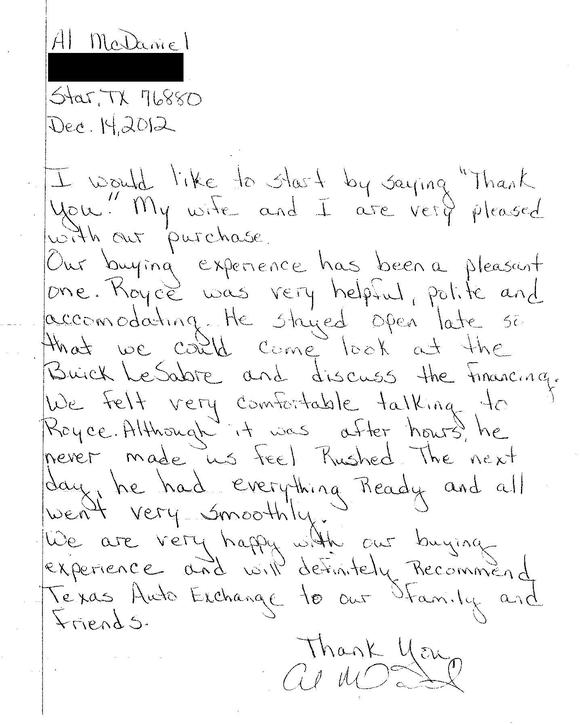 Al McDaniel
Star, TX 76880
Dec. 14, 2012
I would like to start by saying "Thank
You." My wife and I are very pleased
with our purchase.
Our buying experience has been a pleasant
one. Royce was very helpful, polite and
accomodating. He stayed open late so
that we could come look at the
Buick LeSabre and discuss the financing.
We felt very comfortable talking to
Royce. Although it was after hours, he
never made us feel Rushed. The next
day, he had everything Ready and all
went very smoothly.
We are very happy with our buying
experience and will definitely Recommend
Texas Auto Exchange to our family and
friends.
Thank You,
Al McDaniel